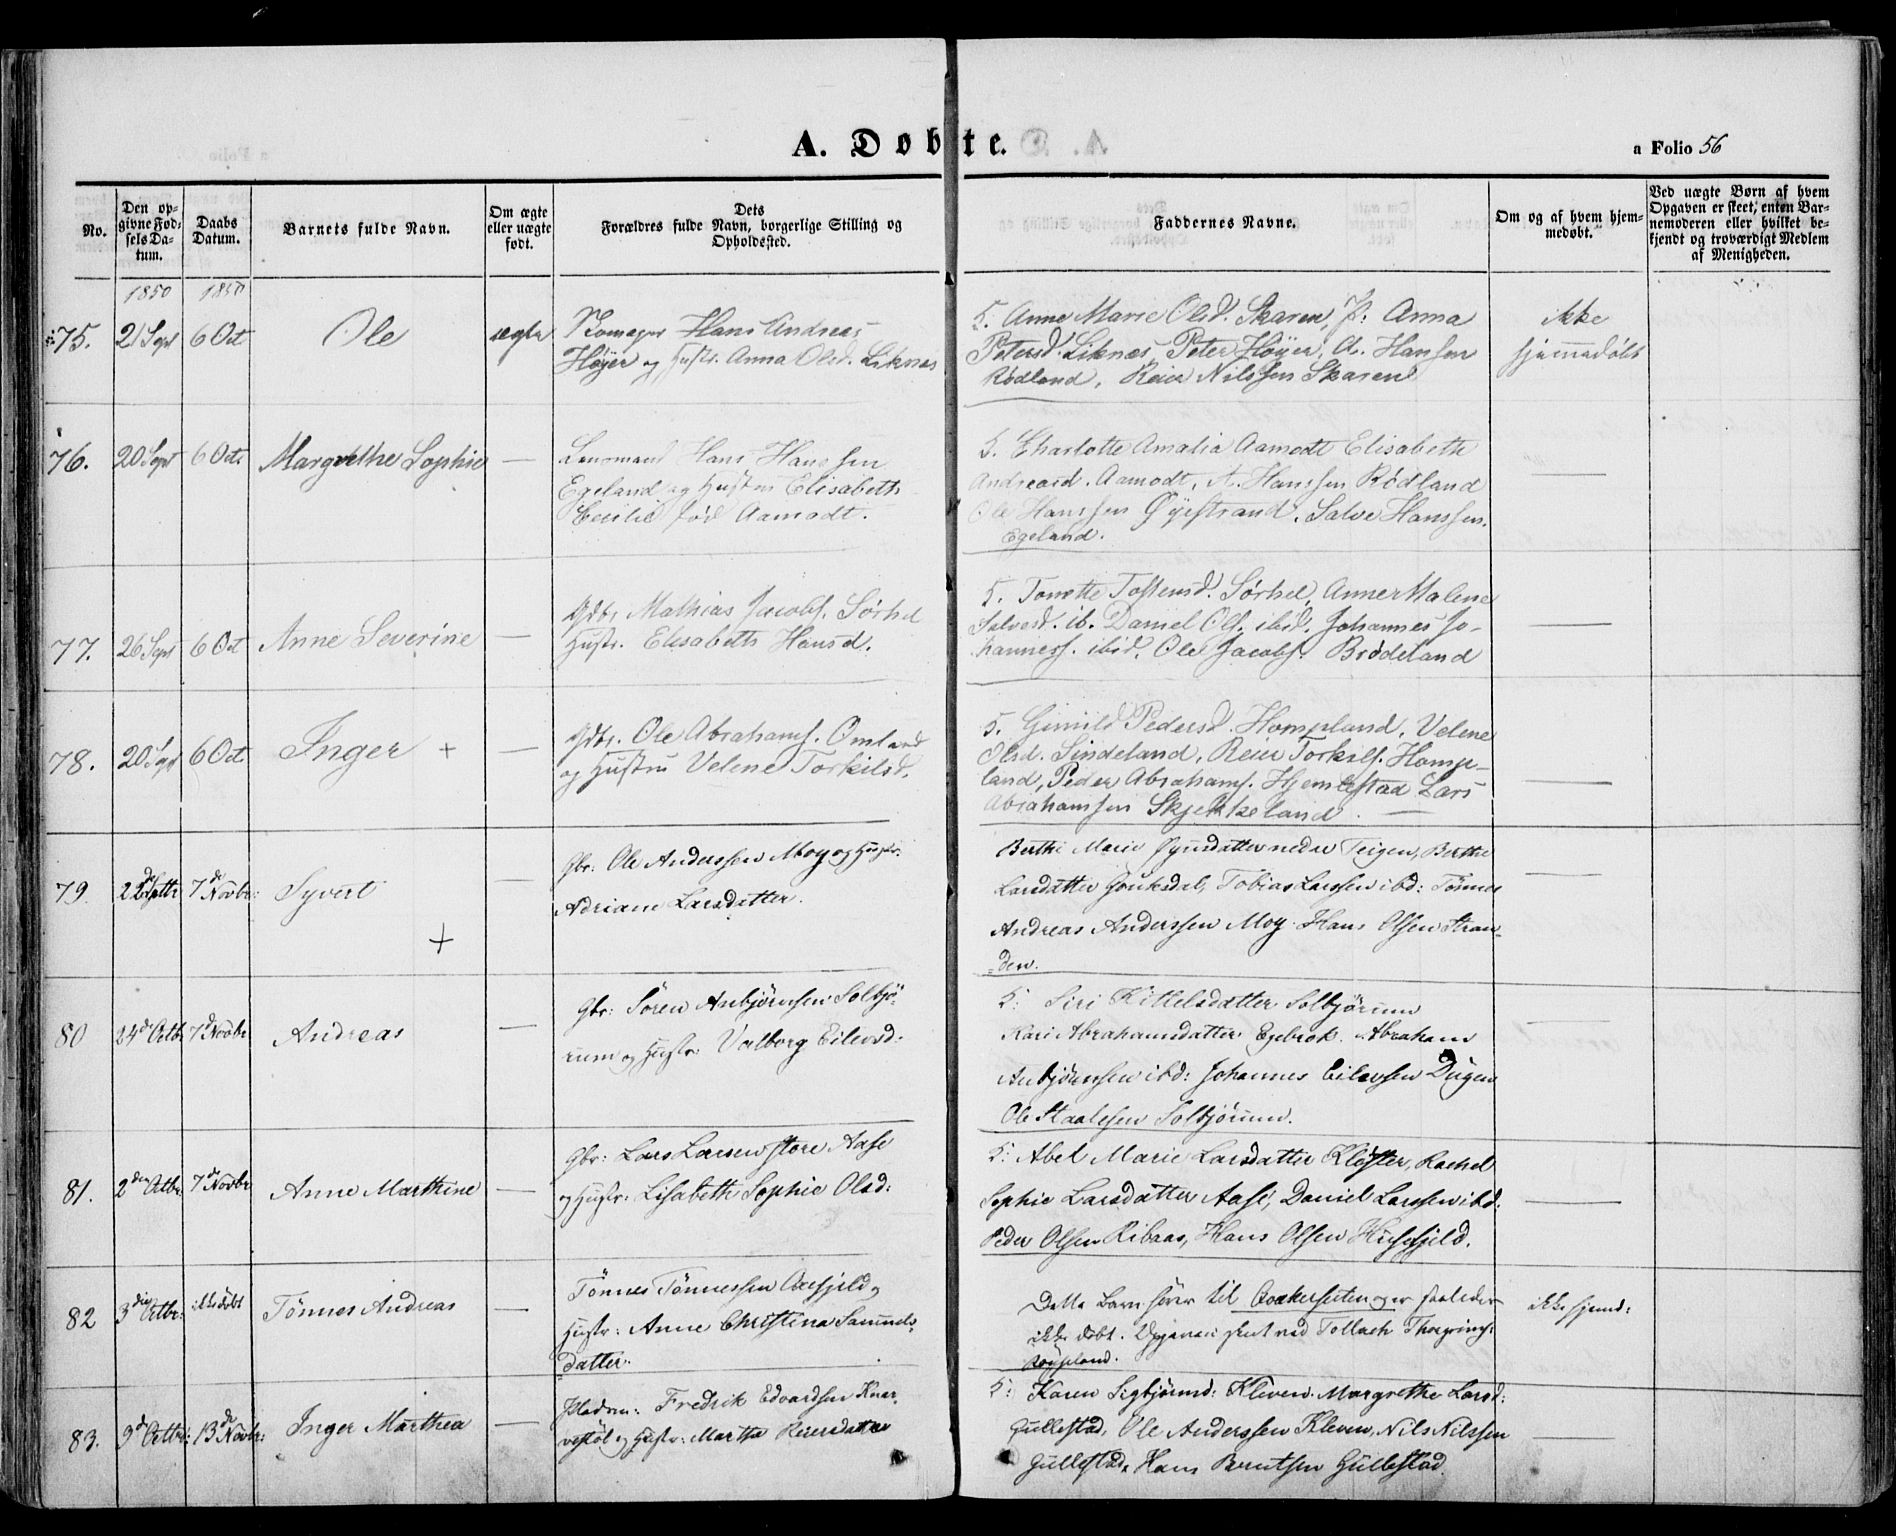 A. Døbte.
a Folio 56
No.
Den opgivne Fødsels Datum.
Daabs Datum.
Barnets fulde Navn.
Om ægte eller uægte født.
Dets Forældres fulde Navn, borgerlige Stilling og Opholdssted.
Faddernes Navne.
Om og af hvem hjemmedøbt.
Ved uægte Børn af hvem Opgaven er skeet, enten Barnemoderen eller hvilket bekjendt og troværdigt Medlem af Menigheden.
1850 1850
75. 21 Sept 6 Oct Ole ægte
Skomager Hans Andreas
Høyer og Hustr. Anna Olsd. Liknæs
5. Anne Marie Olsd. Skaren, P: Anna
Petersd. Liknæs, Peter Høyer, A. Hansen
Rødland, Reier Nilssen Skaren
ikke
hjemmedøbt
76. 20 Sept 6 Oct. Margrethe Sophie —
Lensmand Hans Hanssen
Egeland og Hustru Elisabeth
Cecilie fød Aamodt.
5. Charlotte Amalia Aamodt Elisabeth
Andreasd. Aamodt, A. Hanssen Rødland
Ole Hanssen Øyestrand, Salve Hanssen
Egeland.
—
77. 26 Sept 6 Oct Anne Severine —
Gdbr. Mathias Jacobs. Sørhel
Hustr. Elisabeth Hansd.
5. Tonette Tostensd. Sørhel, Anne Malene
Salvesd. ib. Daniel Ols. ibid. Johannes Jo-
hanness. ibid. Ole Jacobs. Brødeland
—
78. 20 Sept 6 Oct Inger + —
Gdbr. Ole Abrahams. Omland
og Hustru Velene Torkilsd.
5. Gunild Pedersd. Hompland, Velene
Olsd. Sindeland, Reier Torkils. Homp-
land, Peder Abrahams. Hjemlestad Lars
Abrahamsen Skjekkeland. —
—
79. 22de Septbr 7de Novbr: Syvert + —
Gbr: Ole Anderssen Moy og Hustr:
Adriane Larsdatter.
Berthe Marie Syvsdatter nedre Teigen, Berthe
Larsdatter Gouksdal, Tobias Larssen ibd: Tønnes
Andreas Anderssen Moy. Hans Olsen Stran-
den.
—
80 24de Octbr 7de Novbr Andreas —
Gbr: Sören Anbjörnsen Solbjö-
rum og Hustr: Valborg Eilevsd:
5: Siri Kittelsdatter Solbjörum
Kari Abrahamsdatter Egebrok. Abraham
Anbjörnsen ibd: Johannes Eilevsen Dugen
Ole Staalesen Solbjörum.
—
81. 2den Octbr 7de Novbr Anne Marthine —
Gbr: Lars Larsen store Aase
og Hustr: Lisabeth Sophie Olsd:
5: Abel Marie Larsdatter Kløster, Rachel
Sophie Larsdatter Aase, Daniel Larssen ibd:
Peder Olsen Ribaas, Hans Olsen Husefjeld.
—
82 3die Octbr: ikke döbt Tönnes Andreas —
Tönnes Tönnessen Oxefjeld og
Hustr: Anne Christina Samuels-
datter.
Dette Barn hörer til Qvækersecten og er saaledes
ikke döbt. Opgaven skeet ved Tollach Thorgrims:
Röyseland.
ikke hjemd:
83. 9de Octbr: 13de Novbr: Inger Marthea —
Pladsm: Fredrik Edvardsen Kvar-
vestöl og Hustr: Martha Reiersdatter
5: Karen Sigbjörnsd: Kleven. Margrethe Larsd:
Gullestad, Ole Anderssen Kleven, Nils Nilssen
Gullestad, Hans Berntsen Gullestad
—